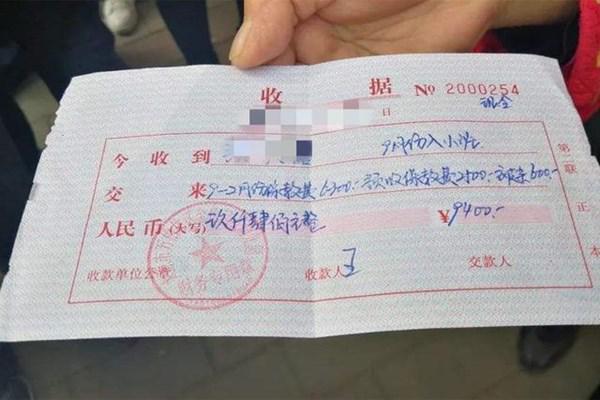 收 据 № 2000254
日 现金
今收到 9月份入小班
交 来 9-2月份保教费6300.- 预收保教费2500.- 600.-
人民币(大写) 玖仟肆佰元整 ¥9400.-
收款单位公章 收款人 王 交款人
财务专用章
第二联 正本